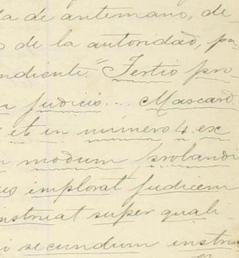 da de antemano, de
de la autoridad, pa
ndiente." Tertio pro
judicio... Mascard.
et in numero 4. ex
modum probandi
implorat judicem
nstruat super quali
i secundum instru